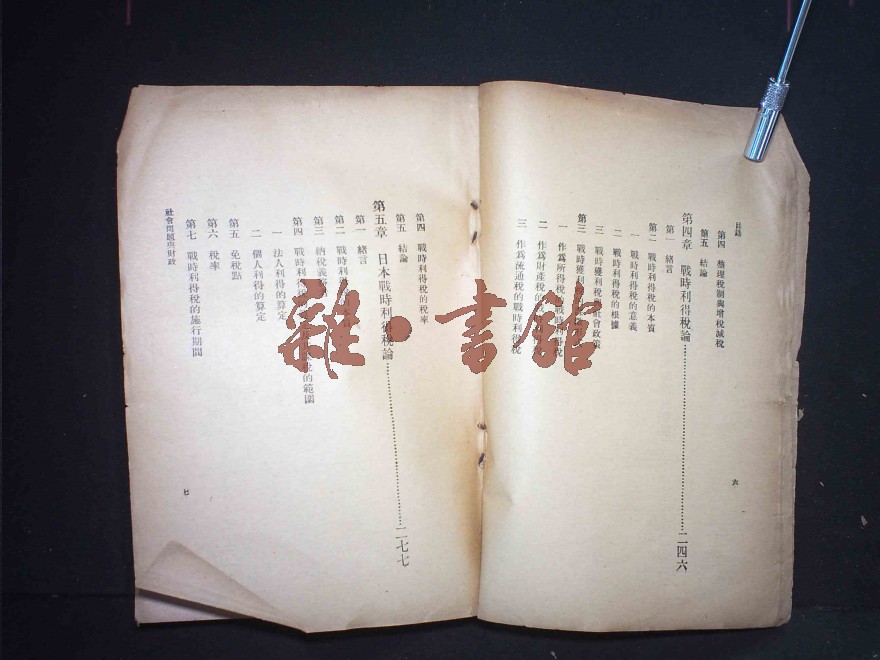 目錄
第四 整理稅制與增稅減稅
第五 結論
第四章 戰時利得稅論……二四六
第一 緒言
第二 戰時利得稅的本質
一 戰時利得稅的意義
二 戰時利得稅的根據
三 戰時獲利稅 社會政策
第三 戰時獲利
一 作爲所得稅 戰時利得稅
二 作爲財產稅的
三 作爲流通稅的戰時利得稅
六
第四 戰時利得稅的稅率
第五 結論
第五章 日本戰時利得稅論……二七七
第一 緒言
第二 戰時利得
第三 納稅義務
第四 戰時利得稅 稅的範圍
一 法人利得的算定
二 個人利得的算定
第五 免稅點
第六 稅率
第七 戰時利得稅的施行期間
社會問題與財政
七
雜·書館